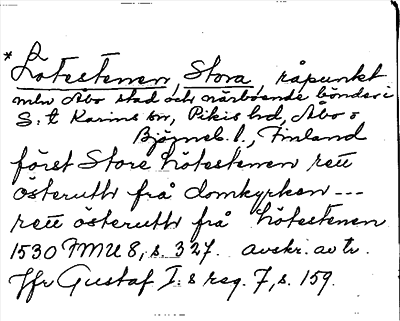 * Lötestenen, Stora, råpunkt
mln Åbo stad och närboende bönder i
S:t Karins sn, Pikis hd, Åbo o
Björneb. l., Finland
förist Store Lötestenen rett
österutth frå domkyrkan ---
rett österutth frå Lötestenen
1530 FMU 8, s. 327. avskr. av tr.
Jfr Gustaf I:s reg. 7, s. 159.